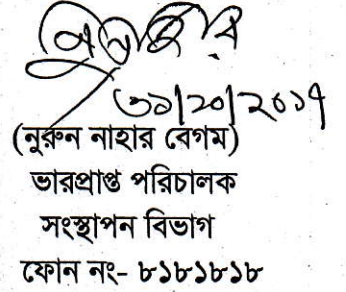 ৩১/১০/২০১৭
(নুরুন নাহার বেগম)
ভারপ্রাপ্ত পরিচালক
সংস্থাপন বিভাগ
ফোন নং- ৮১৮১৮১৮